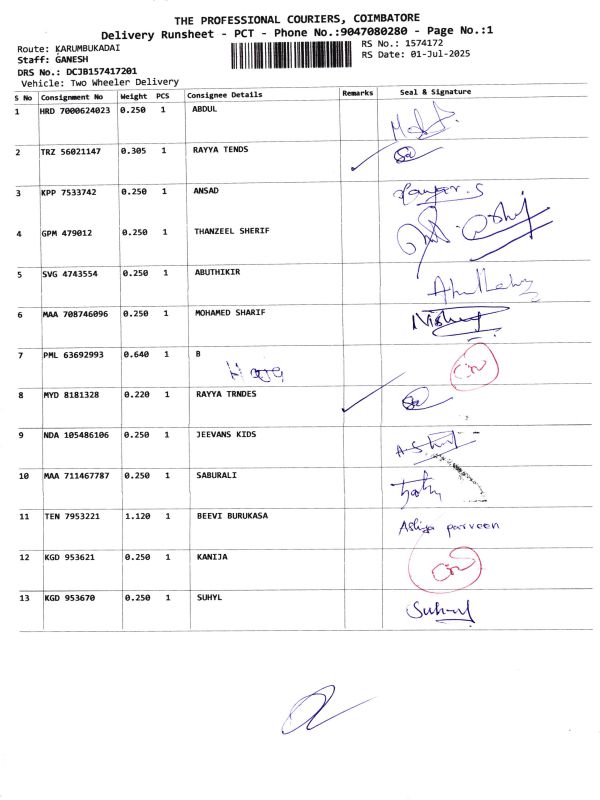 THE PROFESSIONAL COURIERS, COIMBATORE
Delivery Runsheet - PCT - Phone No.:9047080280 - Page No.:1
Route: KARUMBUKADAI
RS No.: 1574172
Staff: GANESH
RS Date: 01-Jul-2025
DRS No.: DCJB157417201
Vehicle: Two Wheeler Delivery
S No Consignment No Weight PCS Consignee Details Remarks Seal & Signature
1 HRD 7000624023 0.250 1 ABDUL
2 TRZ 56021147 0.305 1 RAYYA TENDS
3 KPP 7533742 0.250 1 ANSAD
4 GPM 479012 0.250 1 THANZEEL SHERIF
5 SVG 4743554 0.250 1 ABUTHIKIR
6 MAA 708746096 0.250 1 MOHAMED SHARIF
7 PML 63692993 0.640 1 B
8 MYD 8181328 0.220 1 RAYYA TRNDES
9 NDA 105486106 0.250 1 JEEVANS KIDS
10 MAA 711467787 0.250 1 SABURALI
11 TEN 7953221 1.120 1 BEEVI BURUKASA Ashiya parveen
12 KGD 953621 0.250 1 KANIJA
13 KGD 953670 0.250 1 SUHYL Suhyl